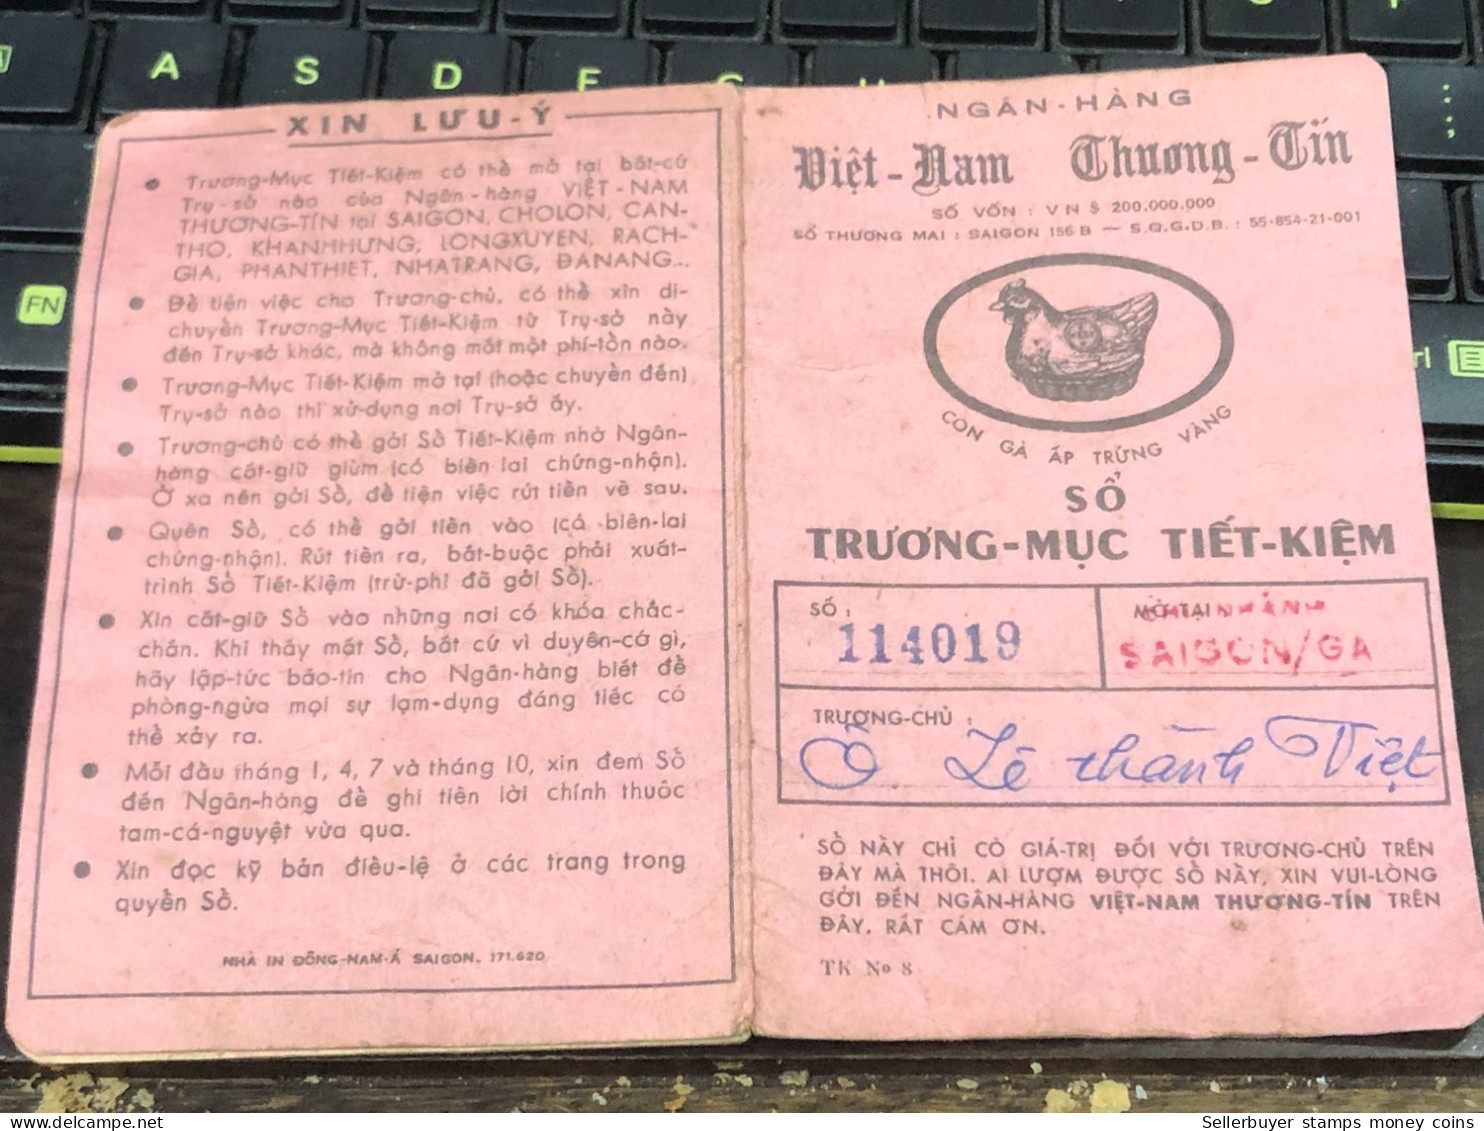 A S D F G H
FN
XIN LƯU-Ý
Trương-Mục Tiết-Kiệm có thể mở tại bất-cứ
Trụ-sở nào của Ngân-hàng VIỆT-NAM
THƯƠNG-TÍN tại SAIGON, CHOLON, CAN-
THO, KHANHHƯNG, LONGXUYEN, RACH-
GIA, PHANTHIET, NHATRANG, ĐANANG...
Để tiện việc cho Trương-chủ, có thể xin di-
chuyển Trương-Mục Tiết-Kiệm từ Trụ-sở này
đến Trụ-sở khác, mà không mất một phí-tổn nào.
Trương-Mục Tiết-Kiệm mở tại (hoặc chuyển đến)
Trụ-sở nào thì xử-dụng nơi Trụ-sở ấy.
Trương-chủ có thể gởi Sổ Tiết-Kiệm nhờ Ngân-
hàng cất-giữ giùm (có biên lai chứng-nhận).
Ở xa nên gởi Sổ, để tiện việc rút tiền về sau.
Quên Sổ, có thể gởi tiền vào (có biên-lai
chứng-nhận). Rút tiền ra, bắt-buộc phải xuất-
trình Sổ Tiết-Kiệm (trừ-phi đã gởi Sổ).
Xin cất-giữ Sổ vào những nơi có khóa chắc-
chắn. Khi thấy mất Sổ, bất cứ vì duyên-cớ gì,
hãy lập-tức báo-tin cho Ngân-hàng biết để
phòng-ngừa mọi sự lạm-dụng đáng tiếc có
thể xảy ra.
Mỗi đầu tháng 1, 4, 7 và tháng 10, xin đem Sổ
đến Ngân-hàng để ghi tiền lời chính thuộc
tam-cá-nguyệt vừa qua.
Xin đọc kỹ bản điều-lệ ở các trang trong
quyển Sổ.
NHÀ IN ĐÔNG-NAM-Á SAIGON. 171.620
NGÂN-HÀNG
Việt-Nam Thương-Tín
SỐ VỐN : VN $ 200.000.000
SỔ THƯƠNG MẠI : SAIGON 156 B — S.Q.G.D.B. : 55-854-21-001
CON GÀ ẤP TRỨNG VÀNG
SỔ
TRƯƠNG-MỤC TIẾT-KIỆM
SỐ : 114019
MỞ TẠI CHI NHÁNH
SAIGON/GA
TRƯƠNG-CHỦ :
Ô. Lê thành Việt
SỔ NÀY CHỈ CÓ GIÁ-TRỊ ĐỐI VỚI TRƯƠNG-CHỦ TRÊN
ĐÂY MÀ THÔI. AI LƯỢM ĐƯỢC SỔ NÀY, XIN VUI-LÒNG
GỞI ĐẾN NGÂN-HÀNG VIỆT-NAM THƯƠNG-TÍN TRÊN
ĐÂY. RẤT CÁM ƠN.
TK No 8
Sellerbuyer stamps money coins